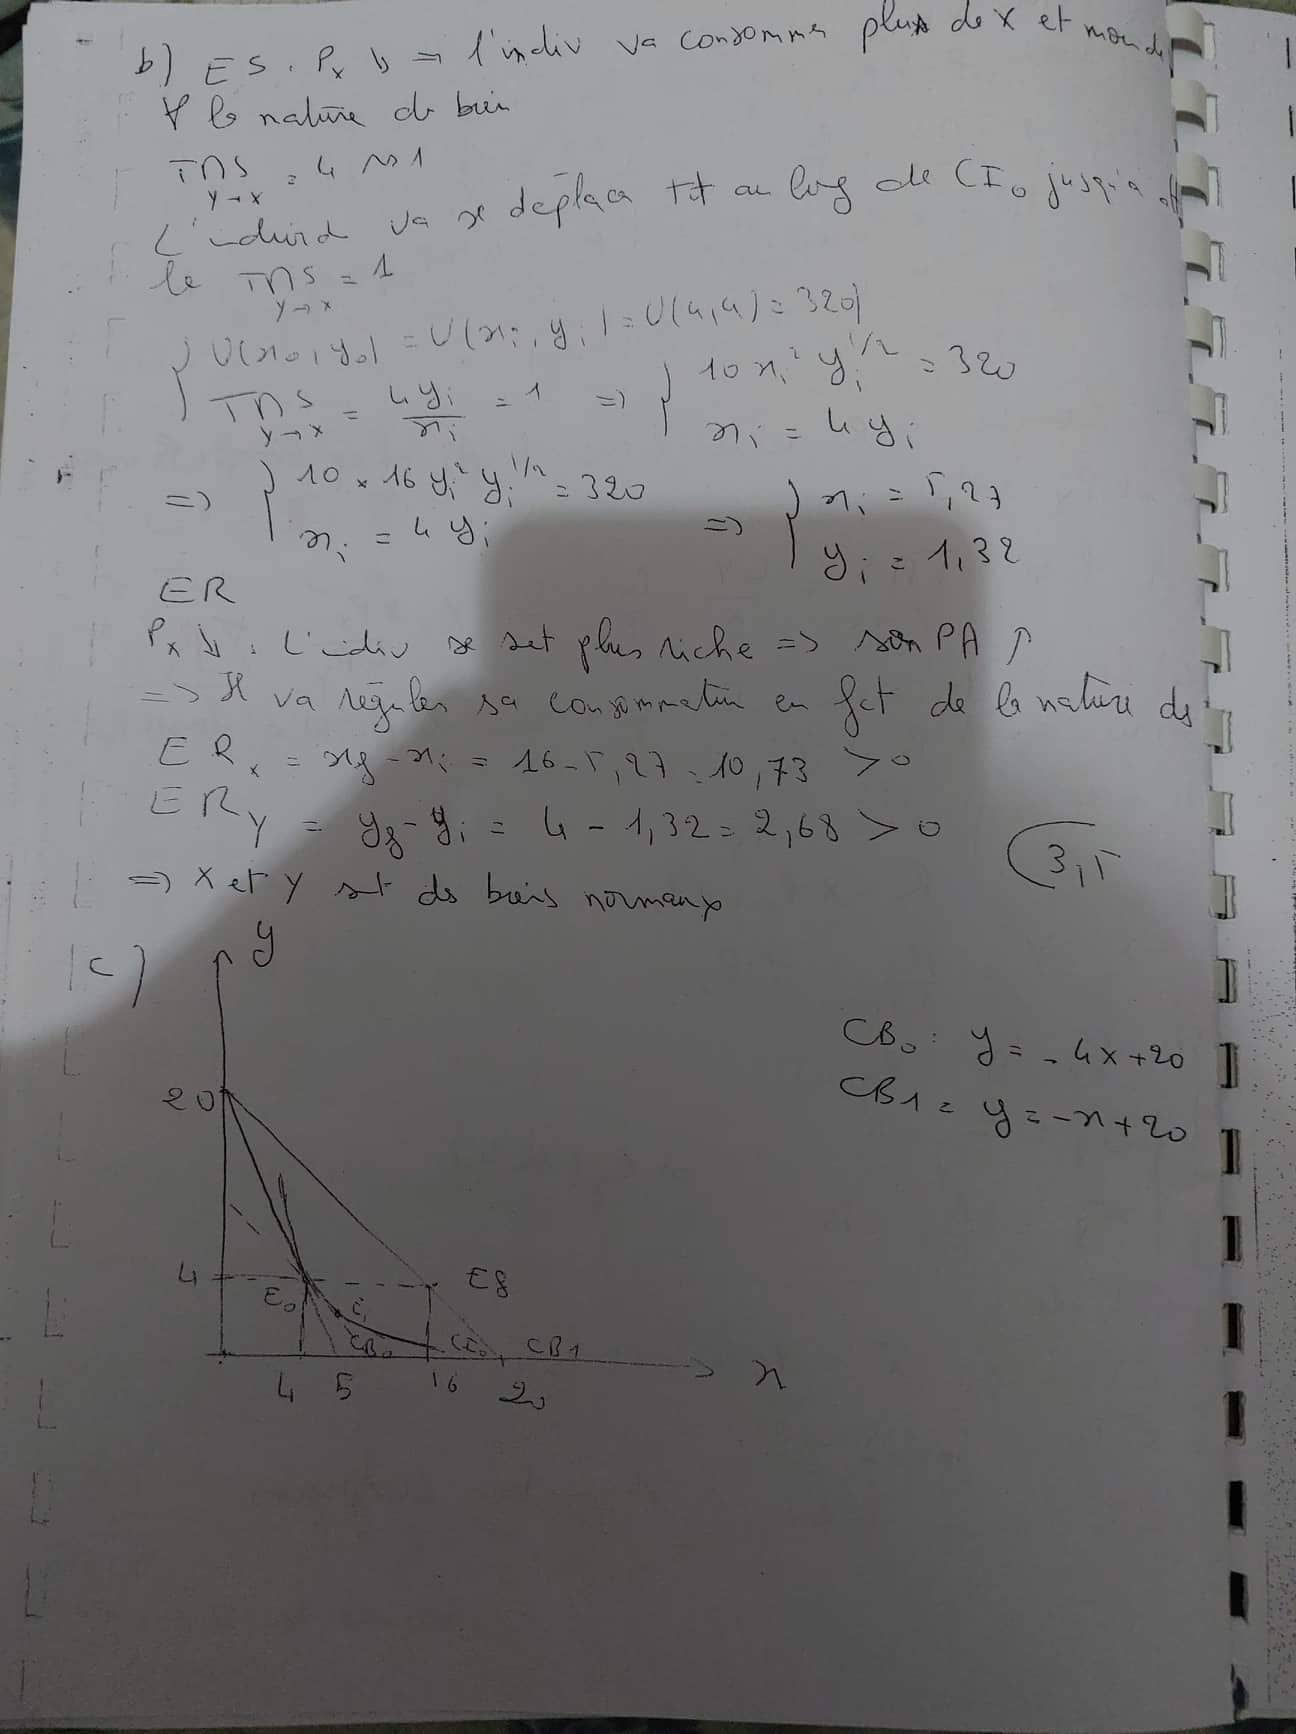 b) ES. Px ↓ ⇒ l'indiv va consommer plus de x et mons de
∀ la nature de bien
TMS y→x = 4 ⇝ 1
L'individ va se déplacer tt au long de CI₀ jusqu'à
le TMS y→x = 1
{ U(x₀, y₀) = U(xi, yi) = U(4,4) = 320
TMS y→x = 4yi/xi = 1 ⇒ { 10 xi² yi^1/2 = 320
xi = 4 yi
⇒ { 10 × 16 yi² yi^1/2 = 320 ⇒ { xi = 5,27
xi = 4 yi yi = 1,32
ER
Px ↓ : L'indiv se set plus riche ⇒ son PA ↑
⇒ Il va réguler sa consommation en fct de la nature ds
ERx = xf - xi = 16 - 5,27 = 10,73 > 0
ERY = yf - yi = 4 - 1,32 = 2,68 > 0
3,5
⇒ x et y st ds biens normaux
c) y
CB₀ : y = -4x + 20
CB1 = y = -x + 20
20
4
E₀ Ei Ef
CB₀ CI₀ CB1
4 5 16 20 x